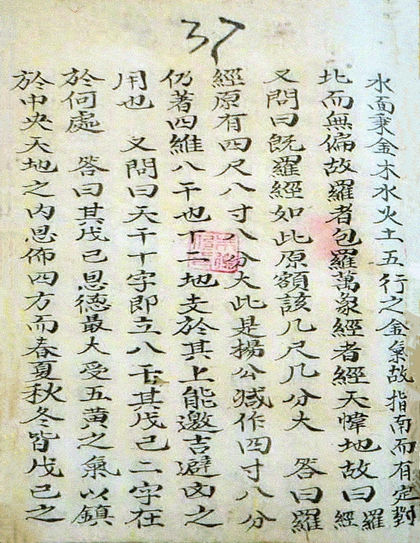 37
水面秉金木水火土五行之金氣故指南而有定對
北而無偏故羅者包羅萬象經者經天幃地故曰羅經
又問曰既羅經如此原額該几尺几分大 答曰羅
經原有四尺八寸八分大此是揚公減作四寸八分
仍著四維八干也十二地支於其上能邀吉避凶之
用也 又問曰天干十字即立八干其戊己二字在
於何處 答曰其戊己恩德最大受五黃之氣以鎮
於中央天地之內恩佈四方而春夏秋冬皆戊己之